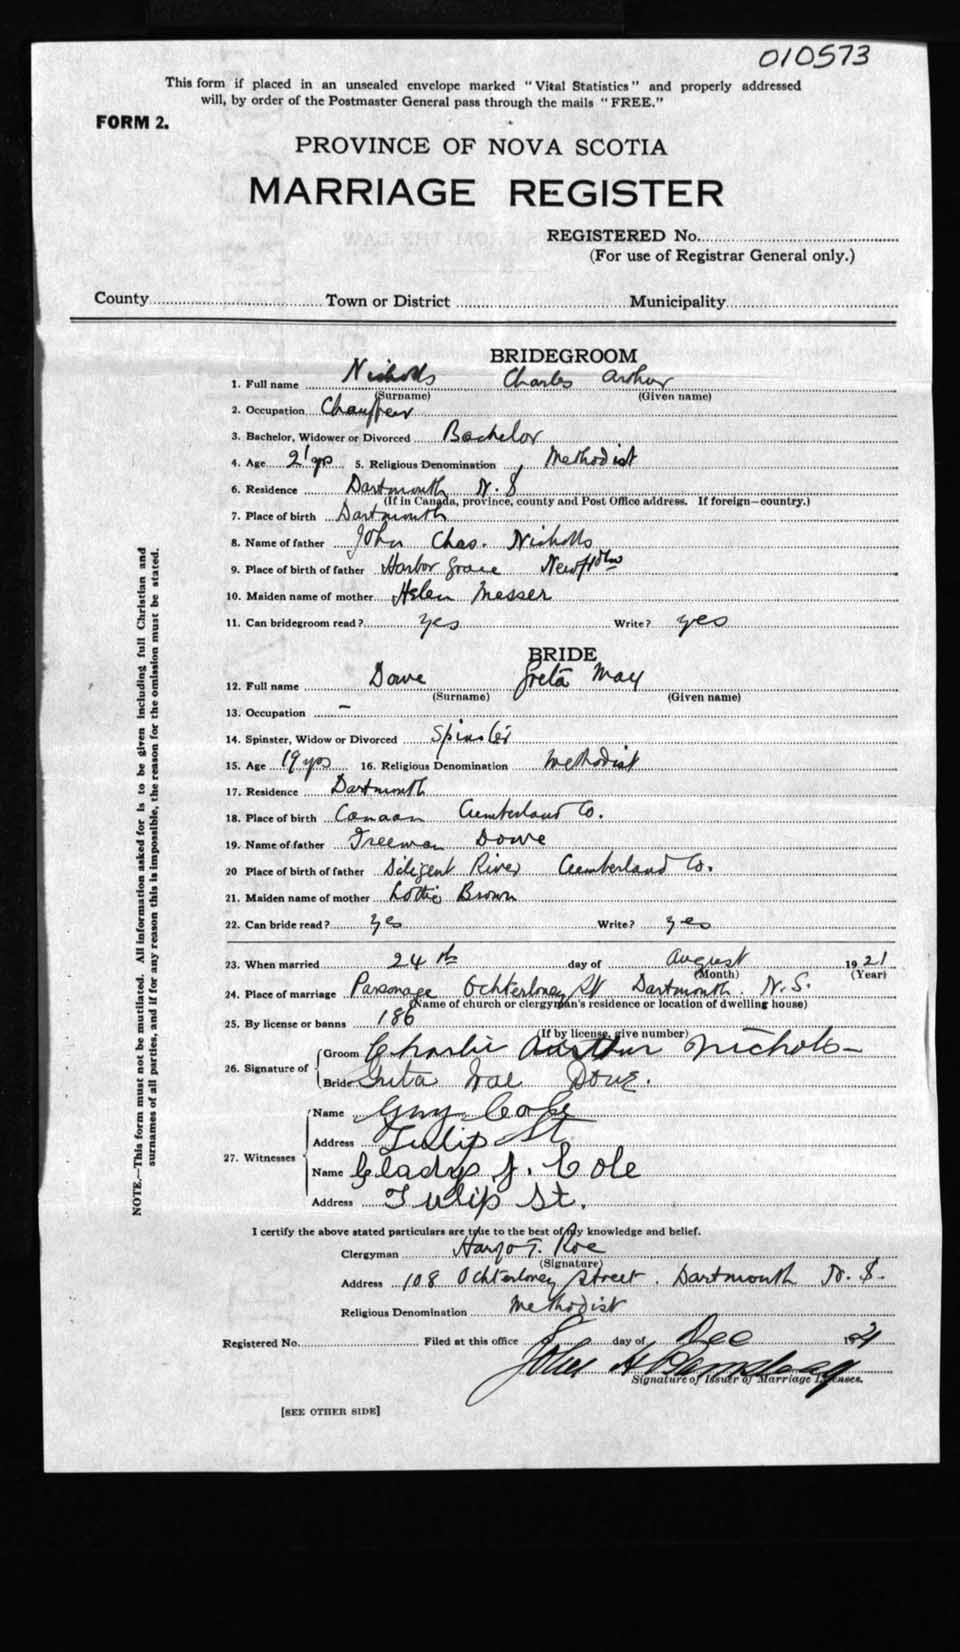 010573
This form if placed in an unsealed envelope marked "Vital Statistics" and properly addressed
will, by order of the Postmaster General pass through the mails "FREE."
FORM 2.
PROVINCE OF NOVA SCOTIA
MARRIAGE REGISTER
REGISTERED No.
(For use of Registrar General only.)
County Town or District Municipality
BRIDEGROOM
1. Full name Nicholls Charles Arthur
(Surname) (Given name)
2. Occupation Chauffeur
3. Bachelor, Widower or Divorced Bachelor
4. Age 21 yrs 5. Religious Denomination Methodist
6. Residence Dartmouth N.S
(If in Canada, province, county and Post Office address. If foreign—country.)
7. Place of birth Dartmouth
8. Name of father John Chas. Nicholls
9. Place of birth of father Harbor Grace Newfldlw
10. Maiden name of mother Helen Messer
11. Can bridegroom read? yes Write? yes
BRIDE
12. Full name Dowe Greta May
(Surname) (Given name)
13. Occupation —
14. Spinster, Widow or Divorced Spinster
15. Age 19 yrs 16. Religious Denomination Methodist
17. Residence Dartmouth
18. Place of birth Canaan Cumberland Co.
19. Name of father Freeman Dowe
20 Place of birth of father Diligent River Cumberland Co.
21. Maiden name of mother Lottie Brown
22. Can bride read? yes Write? yes
23. When married 24th day of August 1921
(Month) (Year)
24. Place of marriage Parsonage Ochterloney St Dartmouth. N.S.
(Name of church or clergyman's residence or location of dwelling house)
25. By license or banns 186
(If by license, give number)
26. Signature of Groom Charlie Aurthur Nichols
Bride Greta Dowe.
27. Witnesses
Name Guy Cole
Address Tulip St
Name Gladys J. Cole
Address Tulip St.
I certify the above stated particulars are true to the best of my knowledge and belief.
Clergyman T. Roe
(Signature)
Address 108 Ochterloney Street. Dartmouth N.S.
Religious Denomination Methodist
Registered No. Filed at this office day of Dec 1921
John H
Signature of Issuer of Marriage Licenses.
[SEE OTHER SIDE]
NOTE.—This form must not be mutilated. All information asked for is to be given including full Christian and
surnames of all parties, and if for any reason this is impossible, the reason for the omission must be stated.